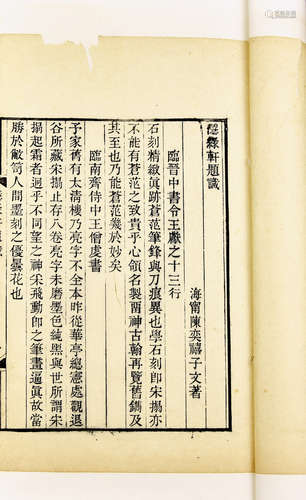 隱綠軒題識
海甯陳奕禧子文著
臨晉中書令王獻之十三行
石刻精緻眞跡蒼茫筆鋒與刀痕異也學石刻即宋搨亦
不能有蒼茫之致貴乎心領名製兩神古翰再覽舊鐫及
其至也乃能蒼茫幾於妙矣
臨南齊侍中王僧虔書
予家舊有太清樓乃亮字不全本昨從華亭總憲處觀退
谷所藏宋搨止存八卷亮字未磨墨色純黑與世所謂宋
搨起霜者迥乎不同望之神采飛動即之筆畫逼眞故當
勝於敝笥人間墨刻之優曇花也